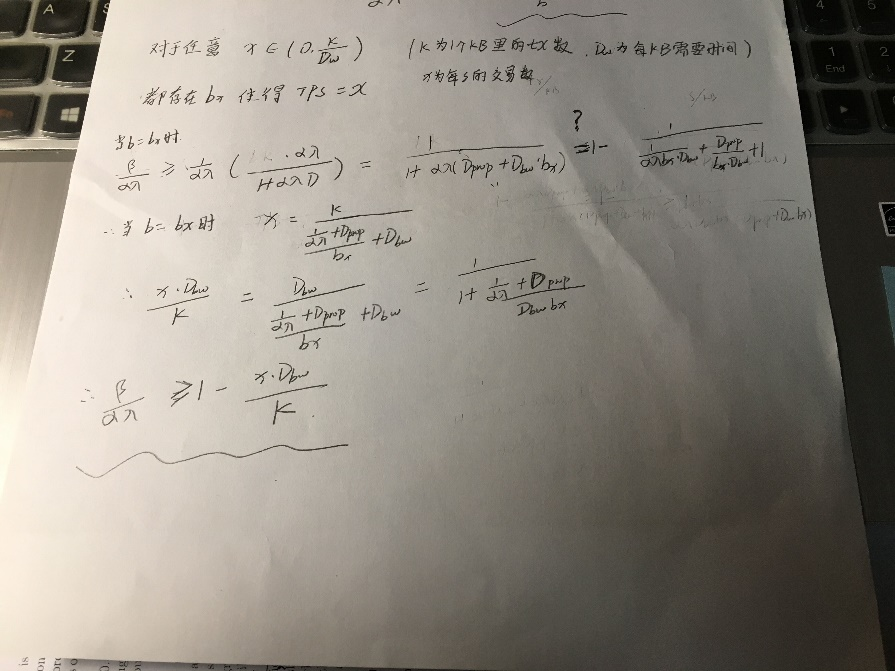 对于任意 x ∈ (0, K/Dbw) (K为1个KB里的tx数, Dbw为每KB需要时间)
都存在 bx 使得 TPS = x x为每s的交易数
s/KB
当b=bx时
β/αλ ≥ 1/αλ ( αλ/(1+αλD) ) = 1/(1+αλ(Dprop+Dbw·bx)) ?= 1 - 1/(1/(αλbx·Dbw) + Dprop/(bx·Dbw) + 1)
∴ 当 b=bx时 x = K/((1/αλ + Dprop)/bx + Dbw)
∴ x·Dbw/K = Dbw/((1/αλ + Dprop)/bx + Dbw) = 1/(1 + (1/αλ + Dprop)/(Dbw bx))
∴ β/αλ ≥ 1 - x·Dbw/K
A
Z
4
5
1
End
2